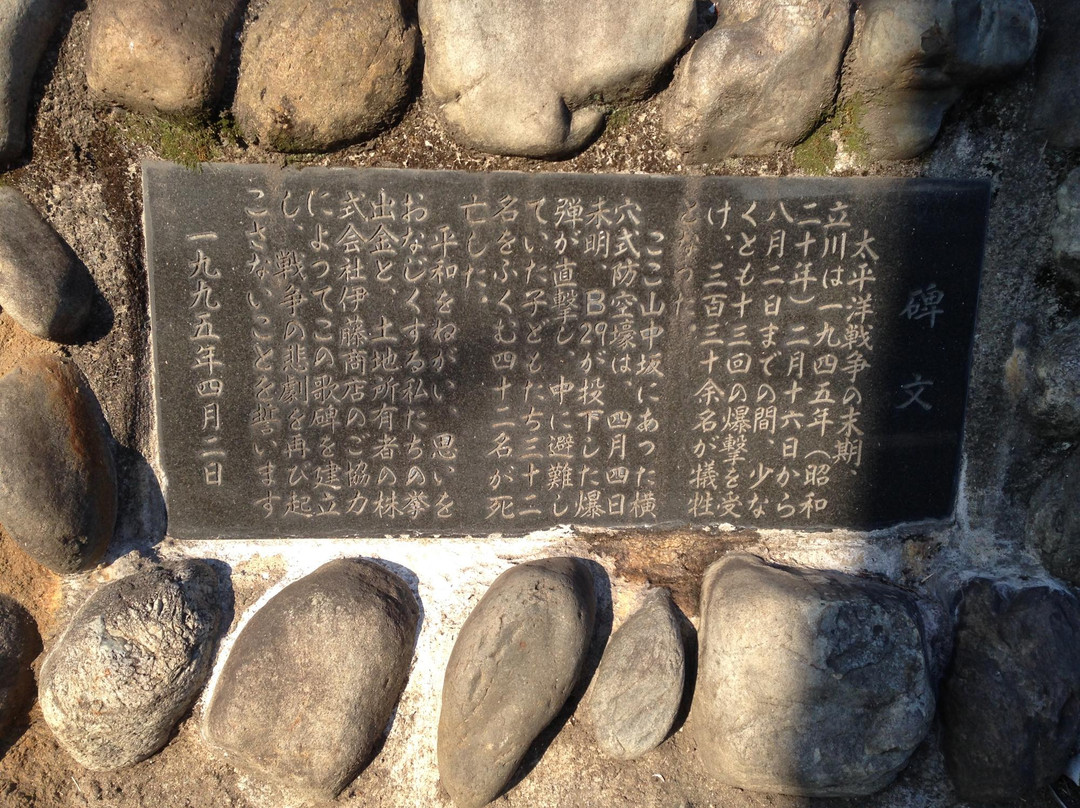 碑文
太平洋戦争の末期
立川は一九四五年(昭和
二十年)二月十六日から
八月二日までの間、少な
くとも十三回の爆撃を受
け、三百三十余名が犠牲
となった。
ここ山中坂にあった横
穴式防空壕は、四月四日
未明、B29が投下した爆
弾が直撃し、中に避難し
ていた子どもたち三十二
名をふくむ四十二名が死
亡した。
平和をねがい、思いを
おなじくする私たちの拳
出金と、土地所有者の株
式会社伊藤商店のご協力
によってこの歌碑を建立
し、戦争の悲劇を再び起
こさないことを誓います
一九九五年四月二日